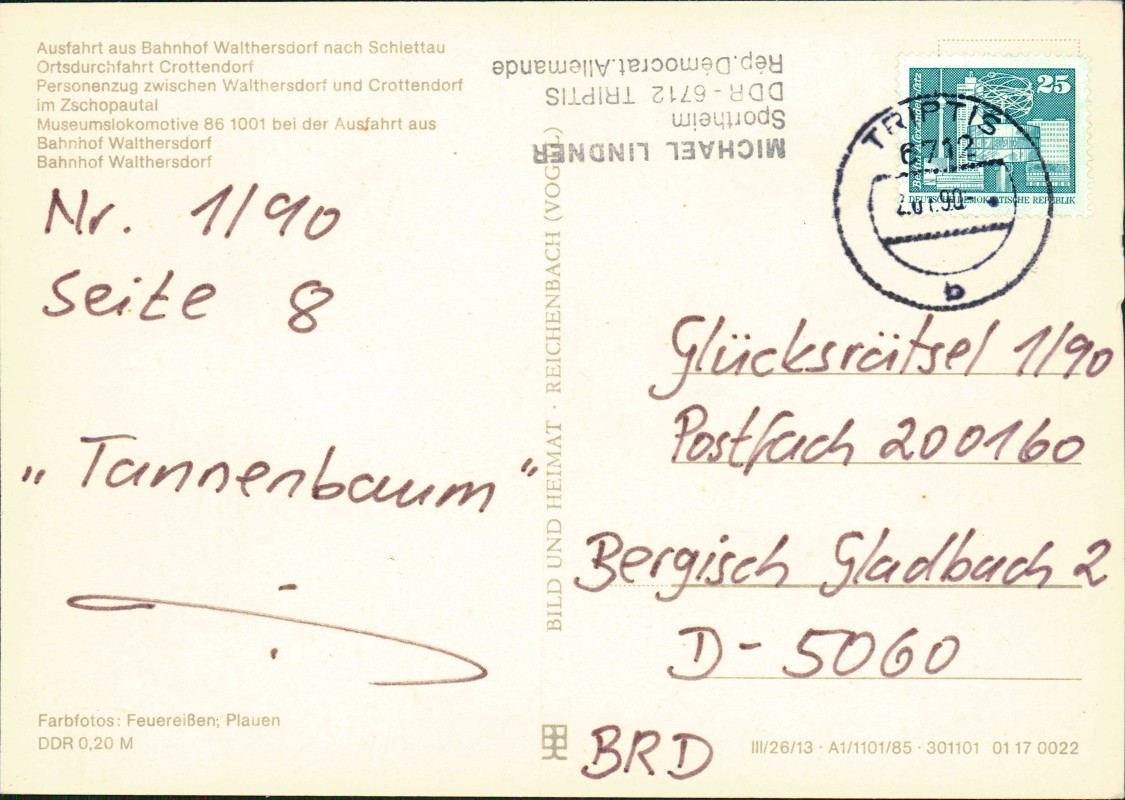 Ausfahrt aus Bahnhof Walthersdorf nach Schlettau
Ortsdurchfahrt Crottendorf
Personenzug zwischen Walthersdorf und Crottendorf
im Zschopautal
Museumslokomotive 86 1001 bei der Ausfahrt aus
Bahnhof Walthersdorf
Bahnhof Walthersdorf
MICHAEL LINDNER
Sportheim
DDR - 6712 TRIPTIS
Rép.Démocrat.Allemande
25
Berlin, Alexanderplatz
DEUTSCHE DEMOKRATISCHE REPUBLIK
TRIPTIS
6712
2.01.90-
b
Nr. 1/90
Seite 8
„Tannenbaum“
BILD UND HEIMAT · REICHENBACH (VOGTL)
Glücksrätsel 1/90
Postfach 200160
Bergisch Gladbach 2
D - 5060
BRD
Farbfotos: Feuereißen; Plauen
DDR 0,20 M
III/26/13 · A1/1101/85 · 301101 01 17 0022